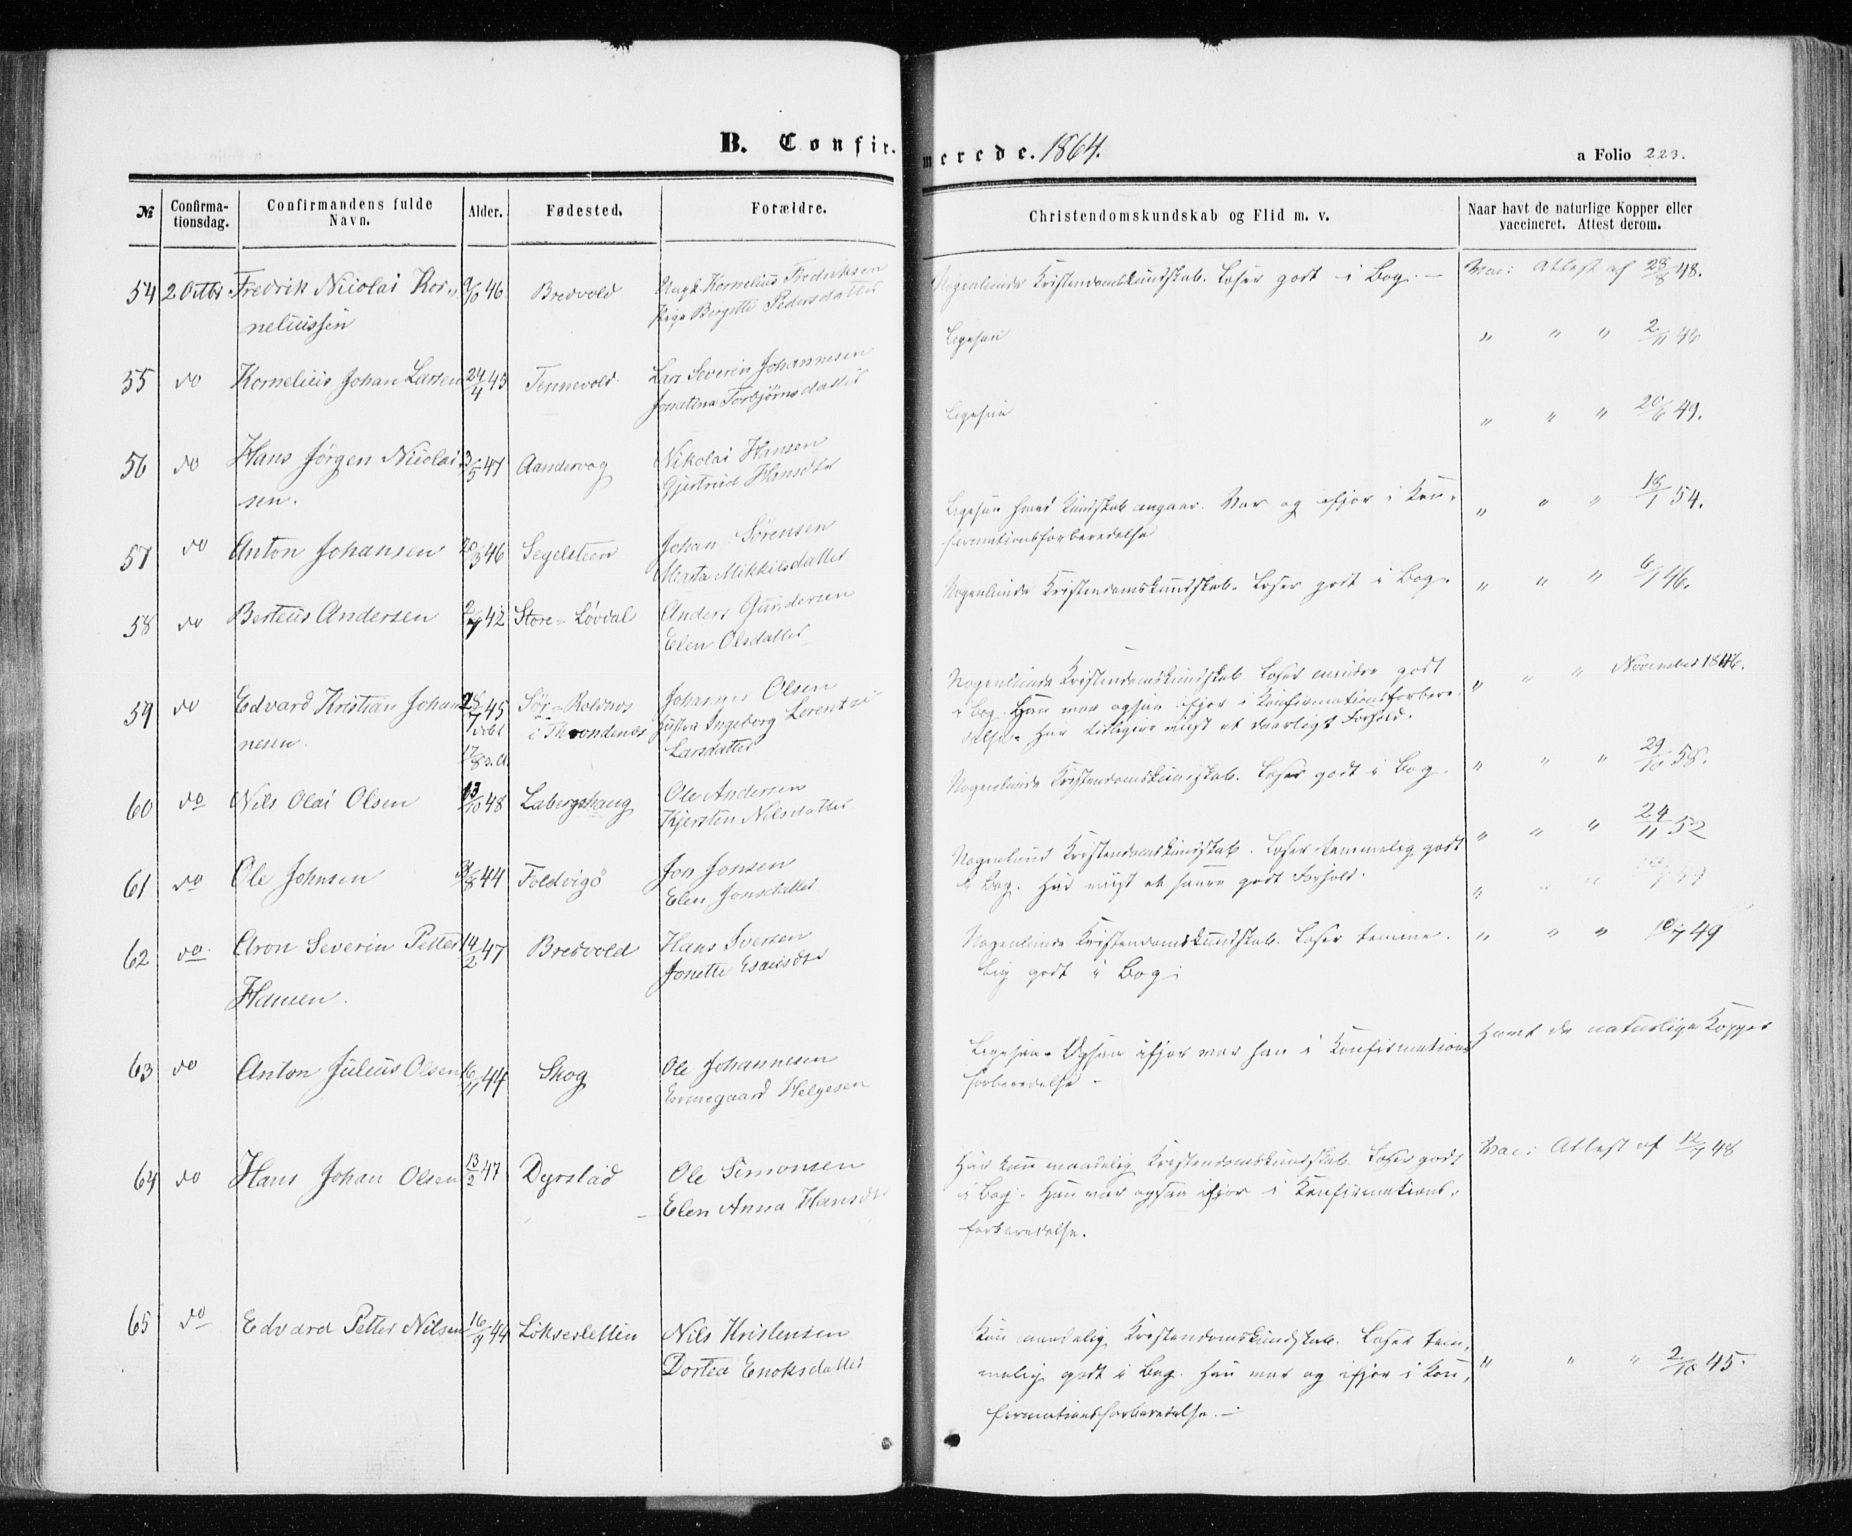 B. Confir-
merede. 1864.
a Folio 223.
№
Confirma-
tionsdag.
Confirmandens fulde
Navn.
Alder.
Fødested.
Forældre.
Christendomskundskab og Flid m. v.
Naar havt de naturlige Kopper eller
vaccineret. Attest derom.
54 2 Octbr Fredrik Nicolai Kor- 46 Bredvold Kornelius Fredriksen
neliussen Birgitte Pedersdatter
Nogenlunde Kristendomskundskab. Læser godt i Bog. – Vac: Attest af 28/8 48.
55 do Kornelius Johan Larsen 24/4 45 Tennevold Lars Severin Johannesen
Jonetina Torbjørnsdatter
Ligesaa " " " 2/11 46
56 do Hans Jørgen Nicolai 3/5 47 Aandervag Nikolai Hansen
sen. Gjertrud Hansdtr
Ligesaa " " " 20/6 49.
57 do Anton Johansen 20/3 46 Segelsteen Johan Sørensen
Marta Mikkelsdatter
Ligesaa hvad Kundskab angaaer. Var og ifjor i Kon- " " " 18/1 54.
firmationsforberedelse
58 do Berteus Andersen 42 Store-Løvdal Anders Gundersen
Elen Olsdatter
Nogenlunde Kristendomskundskab. Læser godt i Bog. " " " 46.
59 do Edvard Kristian Johan 25/7 45 Sør-Rolnes Johannes Olsen
nesen. i Throndenes Ingeborg Lorentse
Larsdatter
Nogenlunde Kristendomskundskab. Læser mindre godt " " " November 1846.
i Bog. Han var ogsaa ifjor i Konfirmationsforbere
delse. Har tidligere viist et daarligt Forhold.
60 do Nils Olai Olsen 13/10 48 Labergshaug Ole Andersen
Kjersten Nilsdatter
Nogenlunde Kristendomskundskab. Læser godt i Bog. " " " 29/10 58.
61 do Ole Johnsen 44 Foldvigø Jon Jonsen
Elen Jonsdatter
Nogenlund Kristendomskundskab. Læser temmelig godt " " " 24/11 52
i Bog. Har viist et godt Forhold.
62 do Aron Severin Petter 14/2 47 Bredvold Hans Iversen
Hansen. Jonette
Nogenlunde Kristendomskundskab. Læser temme- " " " 49
lig godt i Bog.
63 do Anton Julius Olsen 16/11 44 Skog Ole Johannesen
Ermegaard Helgesen
Ligesaa. Ogsaa ifjor var han i Konfirmations Havt de naturlige Kopper
forberedelse –
64 do Hans Johan Olsen 13/2 47 Dyrstad Ole Simonsen
Elen Anna Hansdtr
Har kun maadelig Kristendomskundskab. Læser godt Vac: Attest af 12/7 48
i Bog. Han var ogsaa ifjor i Konfirmations-
forberedelse.
65 do Edvard Petter Nilsen 16/9 44 Løksesletten Nils Kristensen
Dortea Enoksdatter
Kun maadelig Kristendomskundskab. Læser tem-
melig godt i Bog. Han var og ifjor i Kon- " " " 2/10 45.
firmationsforberedelse. –